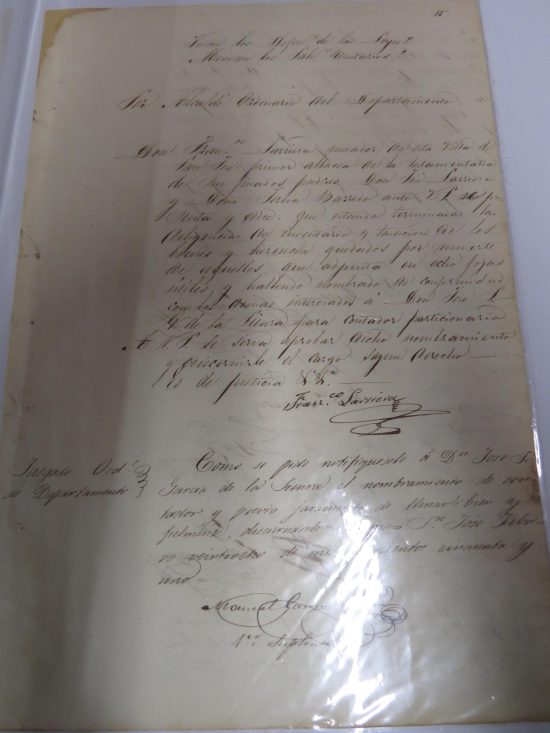 15
Vivan los Defen.s de las Leyes!!
Mueran los Salv. Unitarios!!
Sor. Alcalde Ordinario del Departamento
Don Fran.co Larriera morador de esta Villa de
San José primer albacea de la testamentaria
de sus finados padres Don José Larriera
y Doña Barrero ante V. S. se pre
senta y dice: que estando terminadas las
diligencias de inventario y tasacion de los
bienes y herencia quedados por muerte
de aquellos, que adjunta en ocho fojas
utiles, y habiendo nombrado de conformidad
con los demas interesados á Don José
G. de la Sienra para contador particionario
A V. S. se sirva aprobar dicho nombramiento
y discernirle el cargo segun derecho
es de justicia
Fran.co Larriera
Juzgado Ord.o
de Departamento
Como se pide notifiquesele á Dn. José S.
Garcia de la Sienra el nombramiento de con
tador y previo juramento de llenar bien y
fielmente, Sn. José Febre
ro veintiocho de mil cincuenta y
uno
Manuel
1er Suplente